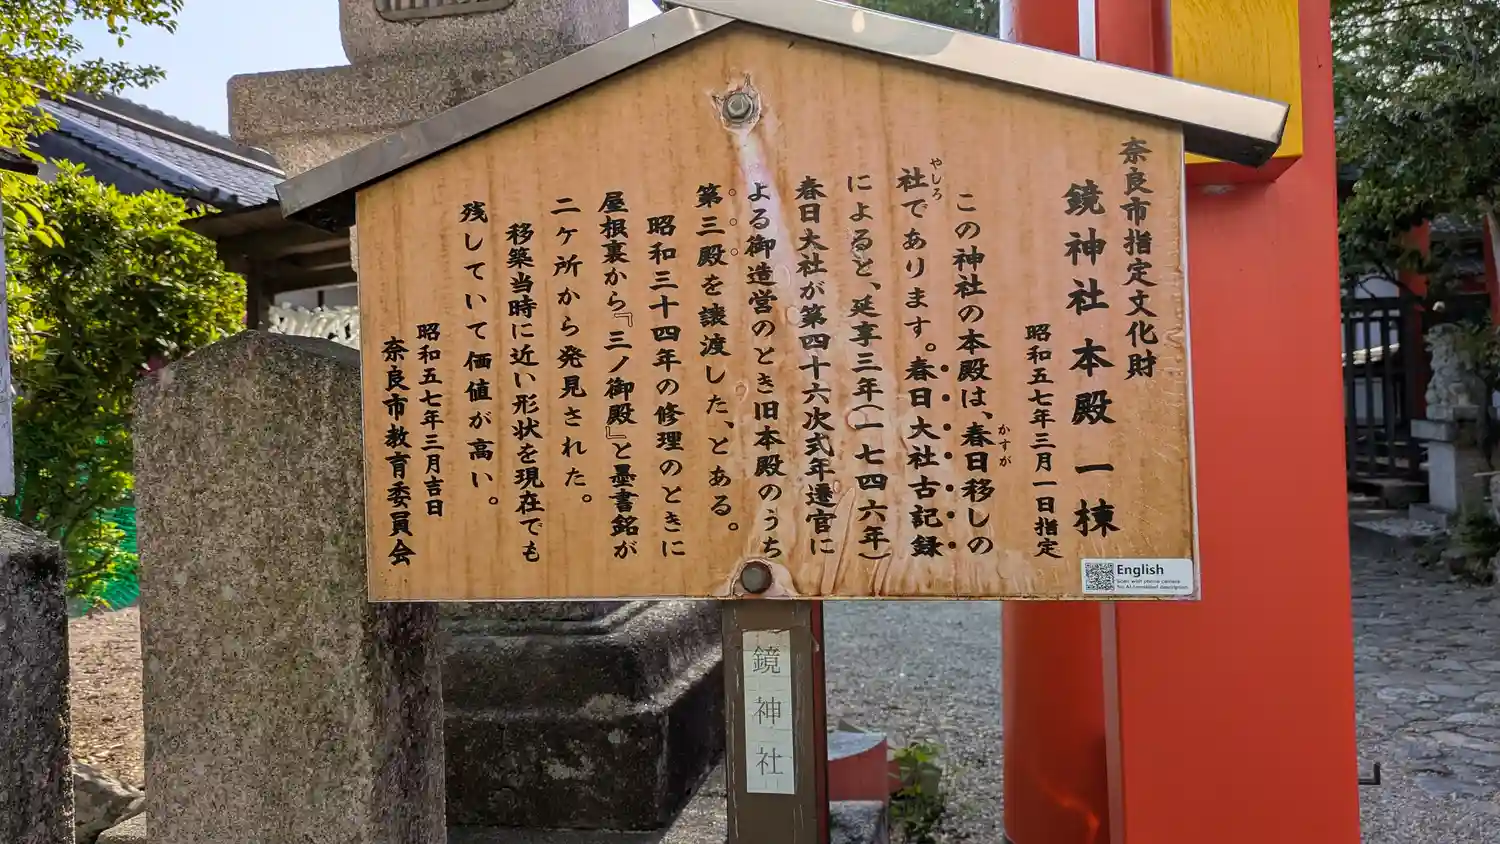 奈良市指定文化財
鏡神社 本殿 一棟
昭和五七年三月一日指定
この神社の本殿は、春日移しの
かすが
社であります。春日大社古記録
やしろ
によると、延享三年(一七四六年)
春日大社が第四十六次式年遷宮に
よる御造営のとき旧本殿のうち
第三殿を譲渡した、とある。
昭和三十四年の修理のときに
屋根裏から『三ノ御殿』と墨書銘が
二ケ所から発見された。
移築当時に近い形状を現在でも
残していて価値が高い。
昭和五七年三月吉日
奈良市教育委員会
English
Scan with phone camera
鏡神社